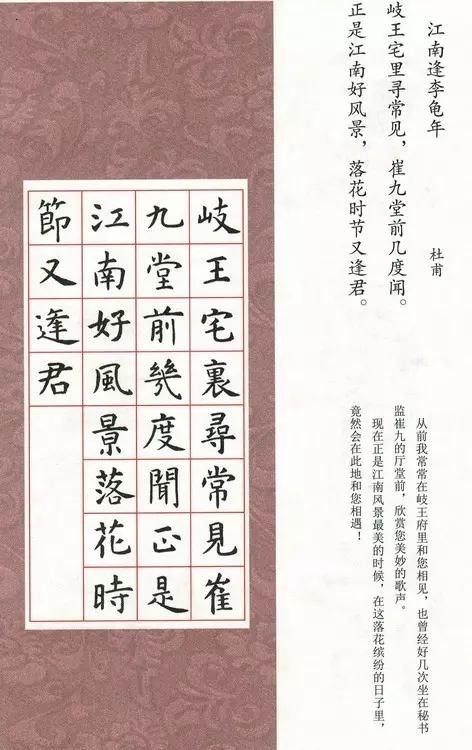 江南逢李龟年
杜甫
岐王宅里寻常见，崔九堂前几度闻。
正是江南好风景，落花时节又逢君。
从前我常常在岐王府里和您相见，也曾经好几次坐在秘书
监崔九的厅堂前，欣赏您美妙的歌声。
现在正是江南风景最美的时候，在这落花缤纷的日子里，
竟然会在此地和您相遇！
岐王宅裏尋常見崔
九堂前幾度聞正是
江南好風景落花時
節又逢君